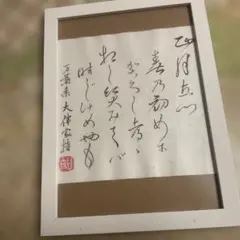 正月立つ
春乃初めに
かくしつつ
相し笑みてバ
時じけめやも
万葉集 大伴家持